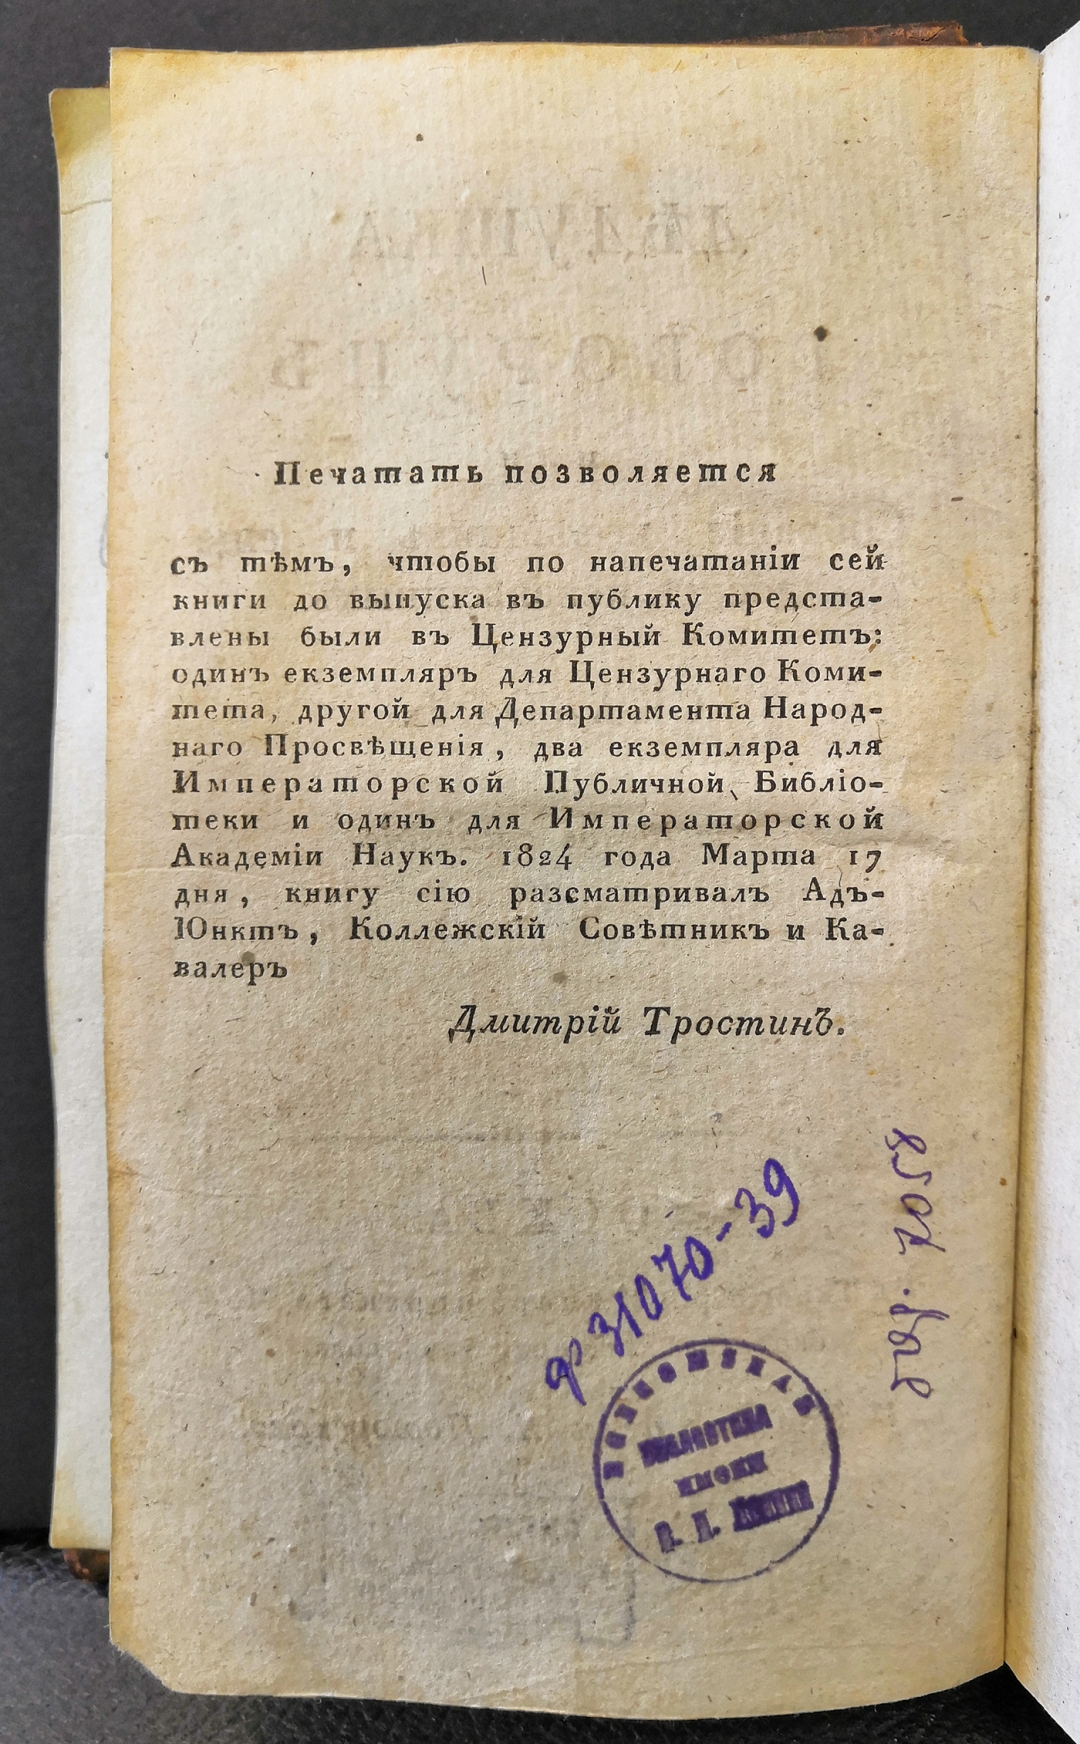 Печатать позволяется
съ тѣмъ, чтобы по напечатаніи сей
книги до выпуска въ публику предста-
влены были въ Цензурный Комитетъ:
одинъ екземпляръ для Цензурнаго Коми-
тета, другой для Департамента Народ-
наго Просвѣщенія, два екземпляра для
Императорской Публичной Библіо-
теки и одинъ для Императорской
Академіи Наукъ. 1824 года Марта 17
дня, книгу сію разсматривалъ Адъ-
Юнктъ, Коллежскій Совѣтникъ и Ка-
валеръ
Дмитрій Тростинъ.
Ф 31070-39
БИБЛИОТЕКА
ИМЕНИ
В. И. Ленина